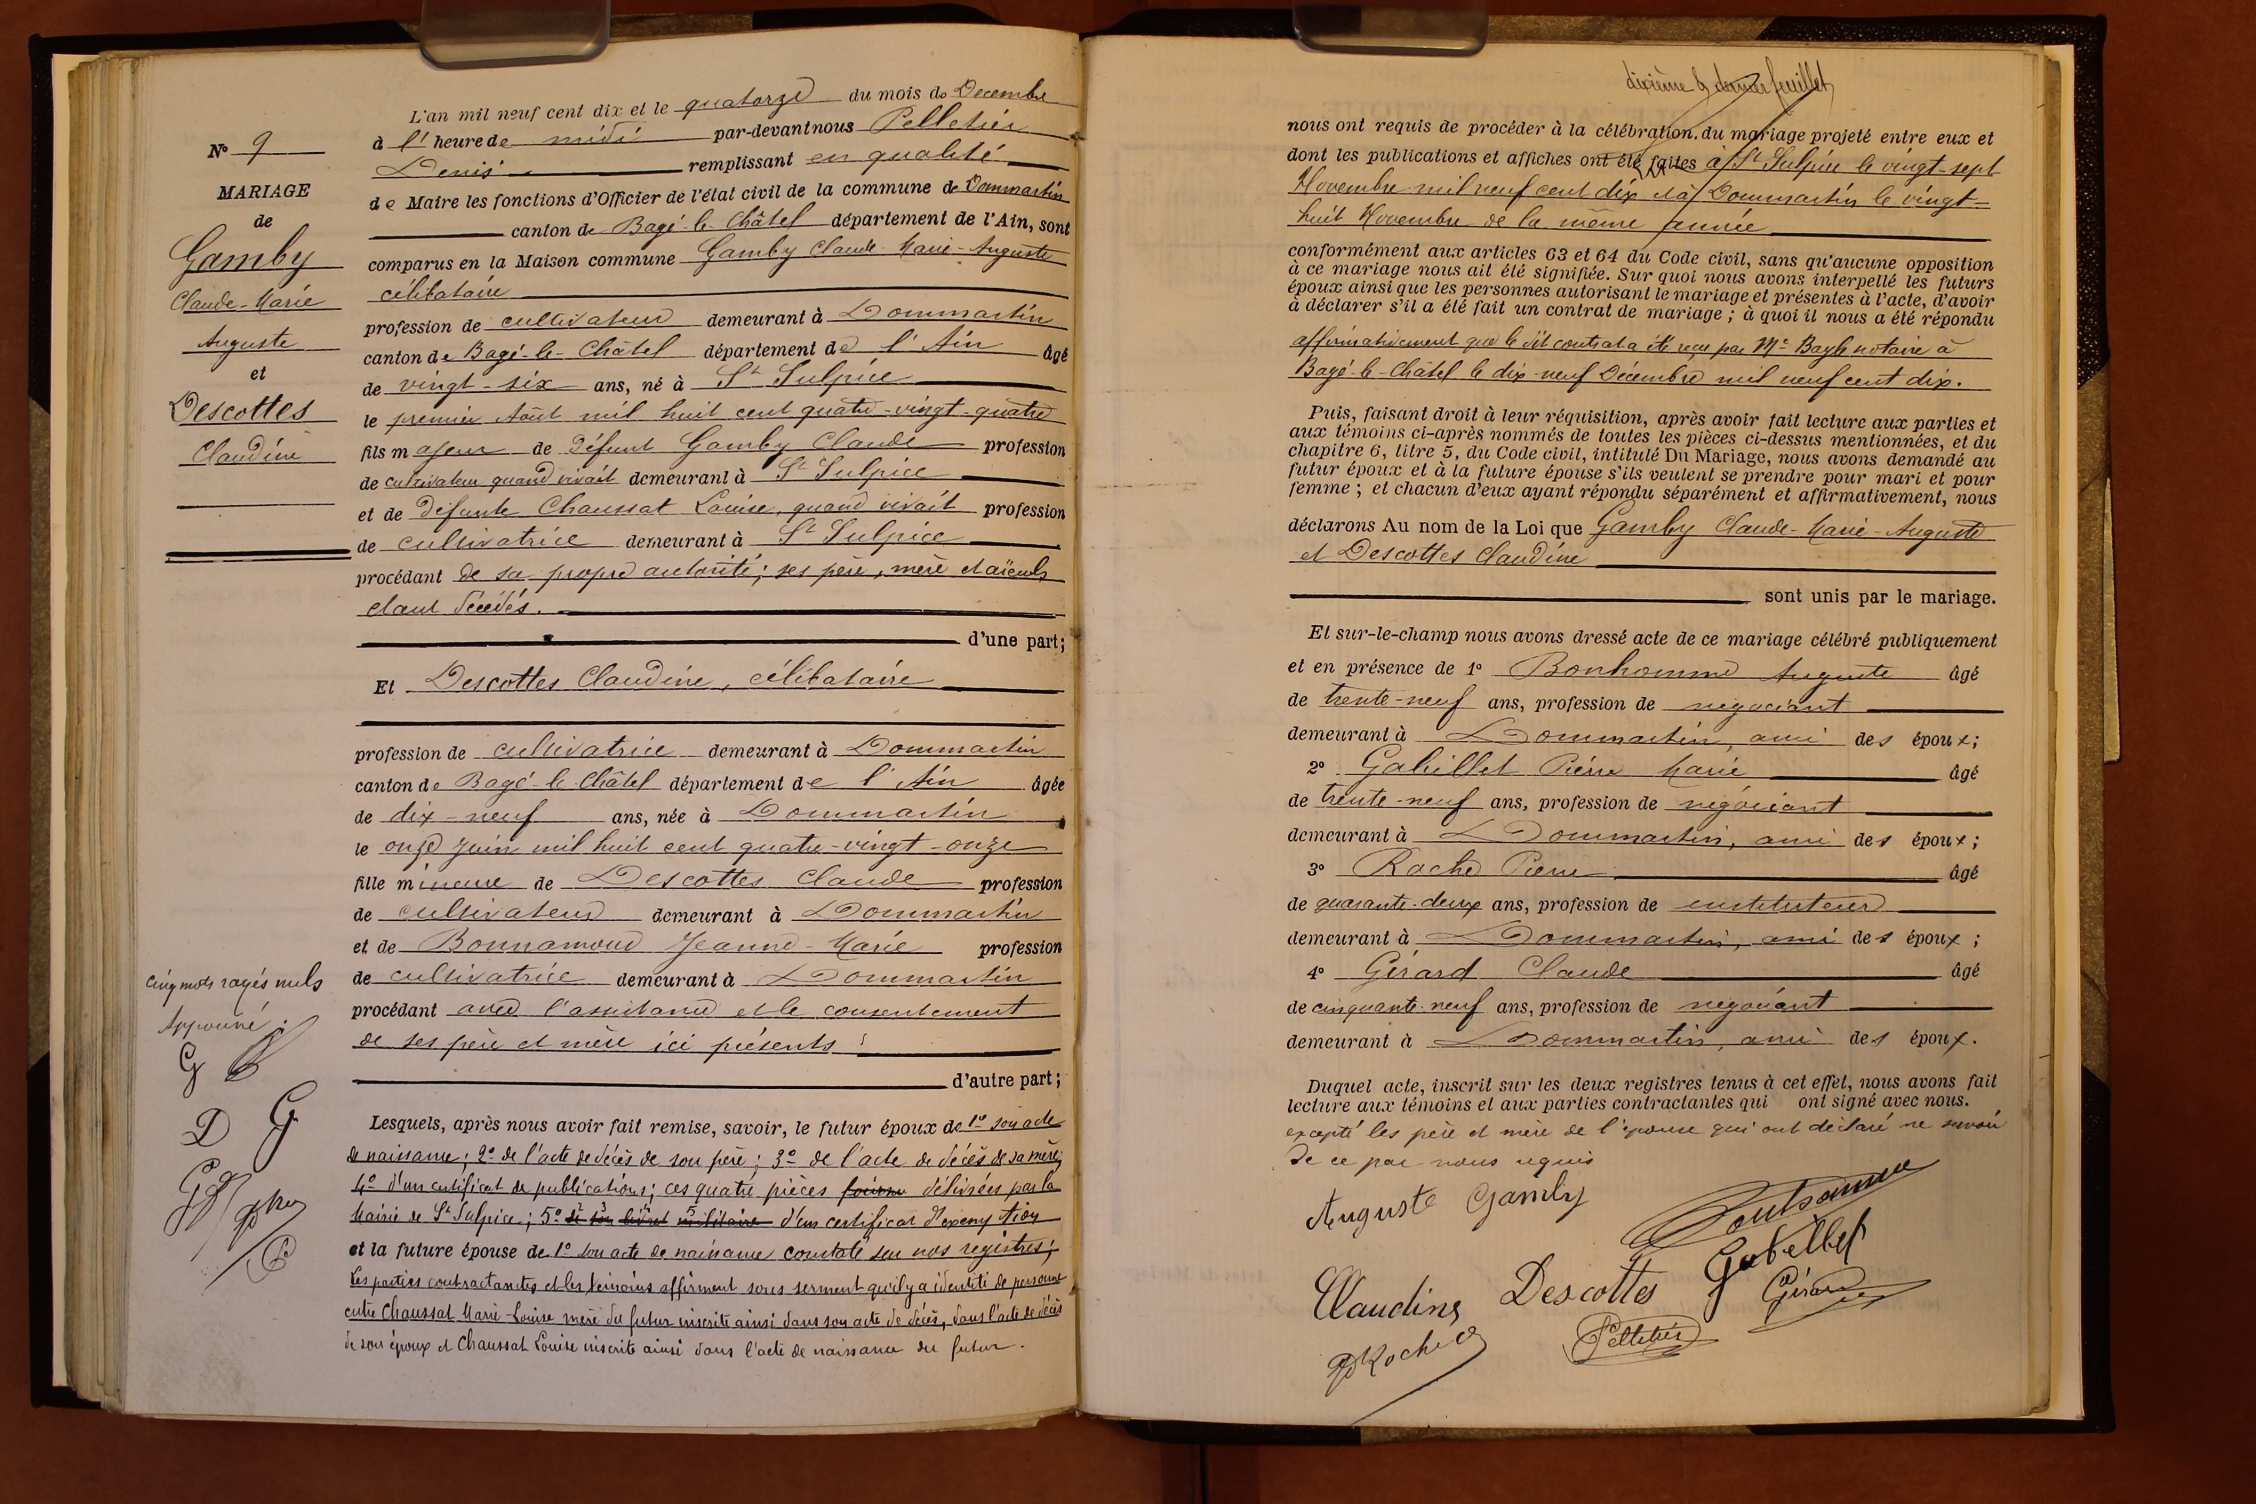 N° 9
MARIAGE
de
Gamby
Claude-Marie
Auguste
et
Descottes
Claudine
cinq mots rayés nuls
Approuvé.
G B
D G
L'an mil neuf cent dix et le quatorze du mois de Decembre
à l'heure de midi par-devant nous Pelletier
Denis remplissant en qualité
de Maire les fonctions d'Officier de l'état civil de la commune de Dommartin
canton de Bagé-le-Châtel département de l'Ain, sont
comparus en la Maison commune Gamby Claude-Marie-Auguste
célibataire
profession de cultivateur demeurant à Dommartin
canton de Bagé-le-Châtel département de l'Ain âgé
de vingt-six ans, né à St Sulpice
le premier Août mil huit cent quatre-vingt-quatre
fils majeur de défunt Gamby Claude profession
de cultivateur quand vivait demeurant à St Sulpice
et de défunte Chaussat Louise, quand vivait profession
de cultivatrice demeurant à St Sulpice
procédant de sa propre autorité; ses père, mère et aïeuls
étant décédés.
d'une part;
Et Descottes Claudine, célibataire
profession de cultivatrice demeurant à Dommartin
canton de Bagé-le-Châtel département de l'Ain âgée
de dix-neuf ans, née à Dommartin
le onze Juin mil huit cent quatre-vingt-onze
fille mineure de Descottes Claude profession
de cultivateur demeurant à Dommartin
et de Bonnamour Jeanne-Marie profession
de cultivatrice demeurant à Dommartin
procédant avec l'assistance et le consentement
de ses père et mère ici présents
d'autre part;
Lesquels, après nous avoir fait remise, savoir, le futur époux de 1° son acte
de naissance; 2° de l'acte de décès de son père; 3° de l'acte de décès de sa mère;
4° d'un certificat de publications; ces quatre pièces délivrées par la
Mairie de St Sulpice; 5° de son livret militaire d'un certificat d'exemption
et la future épouse de 1° son acte de naissance constaté sur nos registres;
Les parties contractantes et les témoins affirment sous serment qu'il y a identité de personne
entre Chaussat Marie-Louise mère du futur inscrite ainsi dans son acte de décès, dans l'acte de décès
de son époux et Chaussat Louise inscrite ainsi dans l'acte de naissance du futur.
dixième & dernier feuillet
nous ont requis de procéder à la célébration du mariage projeté entre eux et
dont les publications et affiches ont été faites à St Sulpice le vingt-sept
Novembre mil neuf cent dix et à Dommartin le vingt-
huit Novembre de la même année
conformément aux articles 63 et 64 du Code civil, sans qu'aucune opposition
à ce mariage nous ait été signifiée. Sur quoi nous avons interpellé les futurs
époux ainsi que les personnes autorisant le mariage et présentes à l'acte, d'avoir
à déclarer s'il a été fait un contrat de mariage; à quoi il nous a été répondu
affirmativement que le dit contrat a été reçu par Me Bayle notaire à
Bagé-le-Châtel le dix-neuf Décembre mil neuf cent dix.
Puis, faisant droit à leur réquisition, après avoir fait lecture aux parties et
aux témoins ci-après nommés de toutes les pièces ci-dessus mentionnées, et du
chapitre 6, titre 5, du Code civil, intitulé Du Mariage, nous avons demandé au
futur époux et à la future épouse s'ils veulent se prendre pour mari et pour
femme; et chacun d'eux ayant répondu séparément et affirmativement, nous
déclarons Au nom de la Loi que Gamby Claude-Marie-Auguste
et Descottes Claudine
sont unis par le mariage.
Et sur-le-champ nous avons dressé acte de ce mariage célébré publiquement
et en présence de 1° Bonhomme Auguste âgé
de trente-neuf ans, profession de négociant
demeurant à Dommartin, ami des époux;
2° Gabillet Pierre Marie âgé
de trente-neuf ans, profession de négociant
demeurant à Dommartin, ami des époux;
3° Roche Pierre âgé
de quarante-deux ans, profession de instituteur
demeurant à Dommartin, ami des époux;
4° Gérard Claude âgé
de cinquante-neuf ans, profession de négociant
demeurant à Dommartin, ami des époux.
Duquel acte, inscrit sur les deux registres tenus à cet effet, nous avons fait
lecture aux témoins et aux parties contractantes qui ont signé avec nous.
excepté les père et mère de l'épouse qui ont déclaré ne savoir
de ce par nous requis
Auguste Gamby
Claudine Descottes Gabillet
Gérard
Roche Pelletier